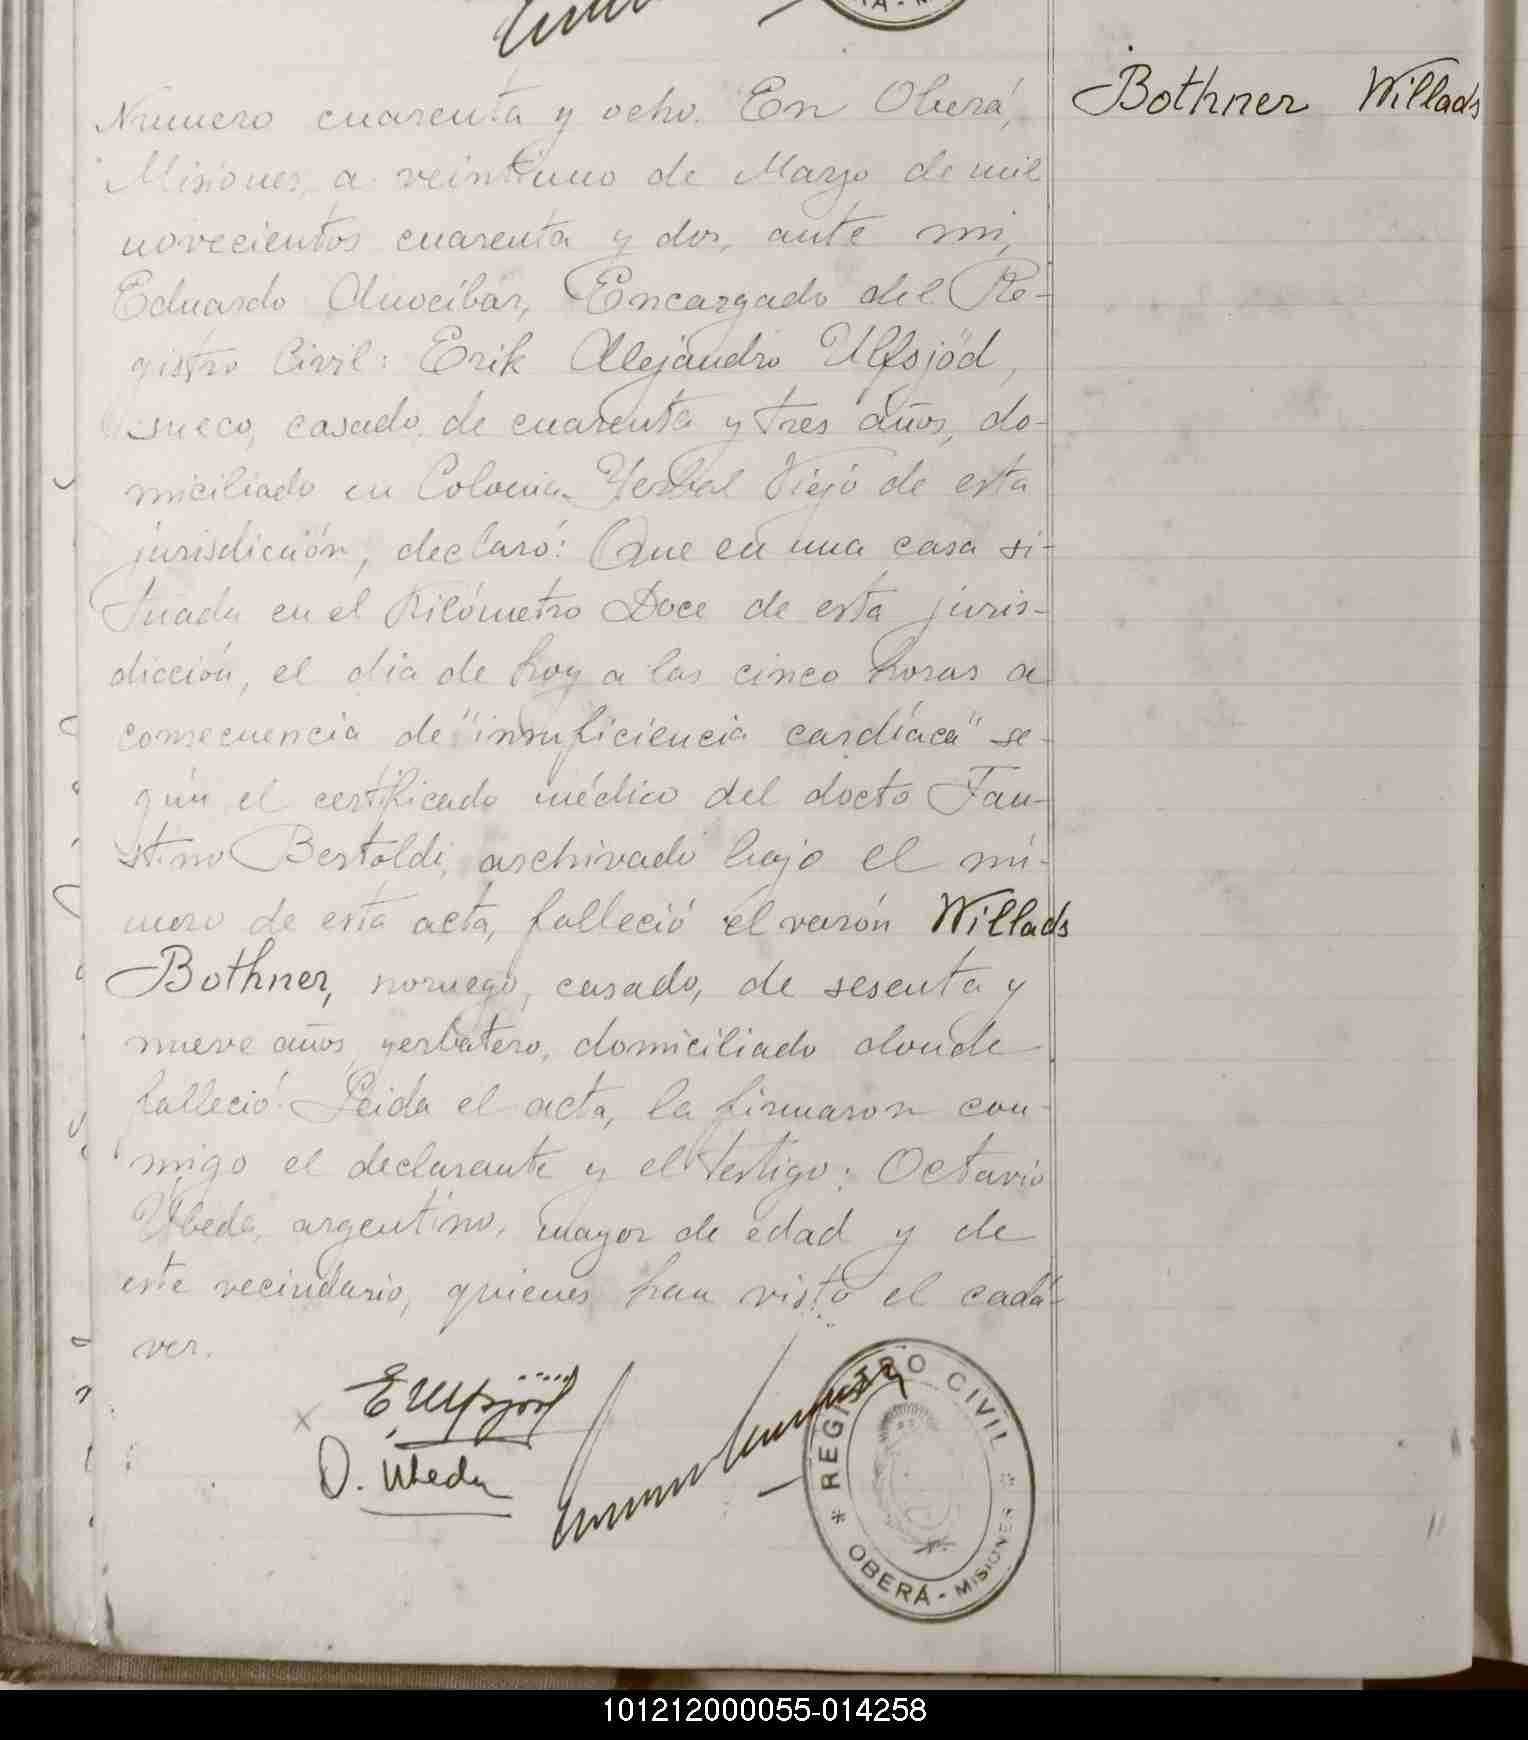 Bothner Willads
Numero cuarenta y ocho. En Oberá,
Misiones, a veintiuno de Marzo de mil
novecientos cuarenta y dos, ante mi,
Eduardo Anocíbar, Encargado del Re-
gistro Civil: Erik Alejandro Ulfsjöd,
sueco, casado, de cuarenta y tres años, do-
miciliado en Colonia Yerbal Viejo de esta
jurisdicción, declaró: Que en una casa si-
tuada en el Kilómetro Doce de esta juris-
dicción, el día de hoy a las cinco horas a
consecuencia de "insuficiencia cardíaca" se-
gún el certificado médico del docto Fau-
stino Bertoldi, archivado bajo el nú-
mero de esta acta, falleció el varón Willads
Bothner, noruego, casado, de sesenta y
nueve años, yerbatero, domiciliado donde
falleció. Leida el acta, la firmaron con-
migo el declarante y el testigo: Octavio
Ubeda, argentino, mayor de edad y de
este vecindario, quienes han visto el cadá-
ver.
E Ulfsjöd
O. Ubeda
REGISTRO CIVIL
* OBERÁ - MISIONES *
101212000055-014258